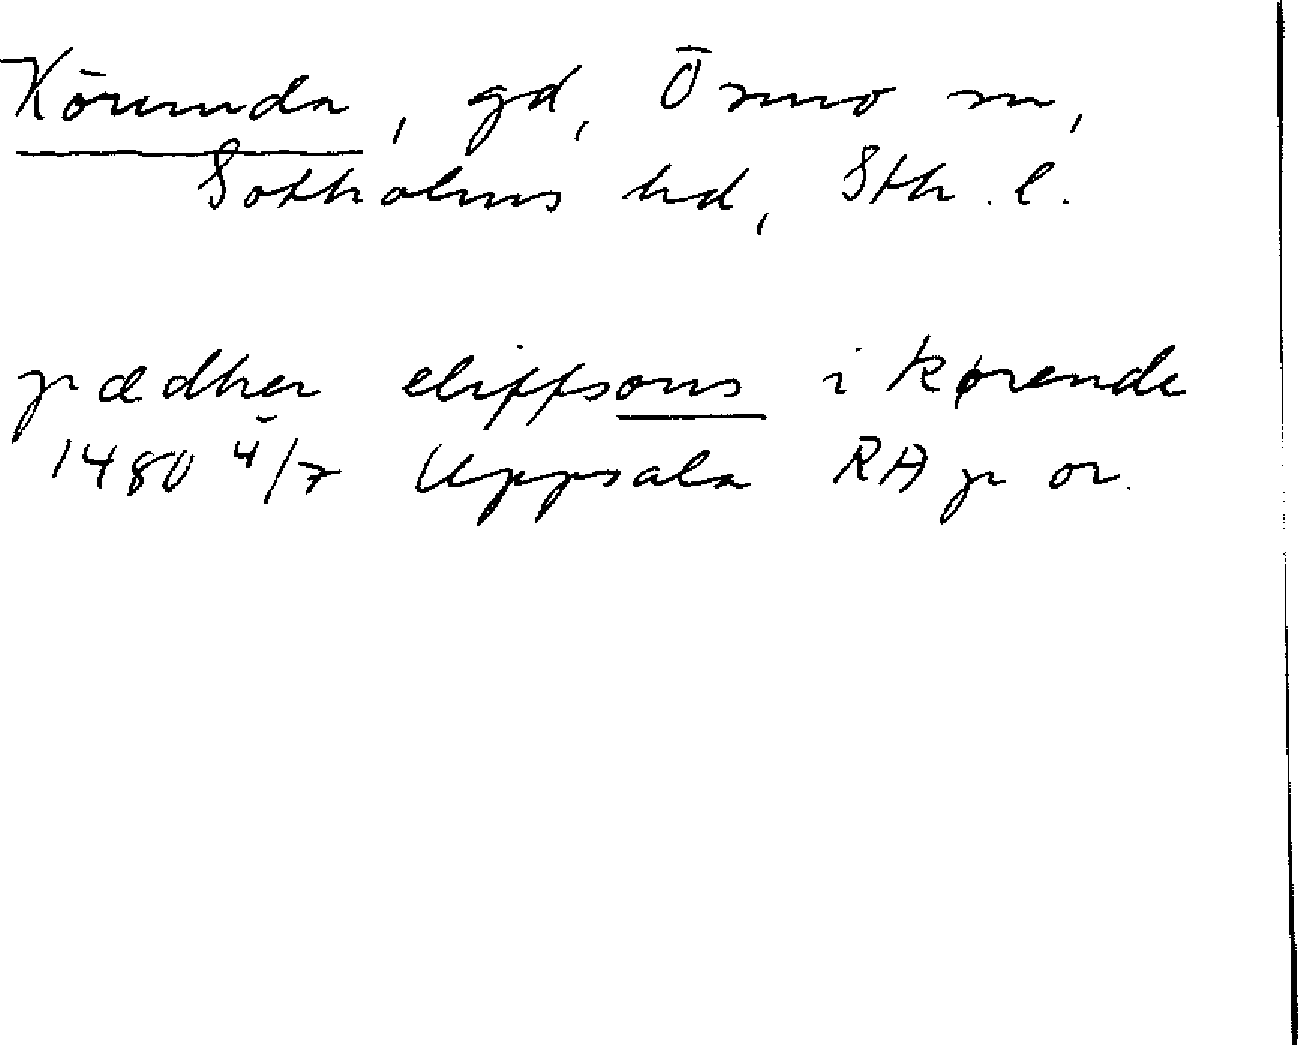 Körunda, gd, Ösmo sn,
Sotholms hd, Sth. l.
pædher eliffsons i kørende
1480 4/7 Uppsala RAp or.